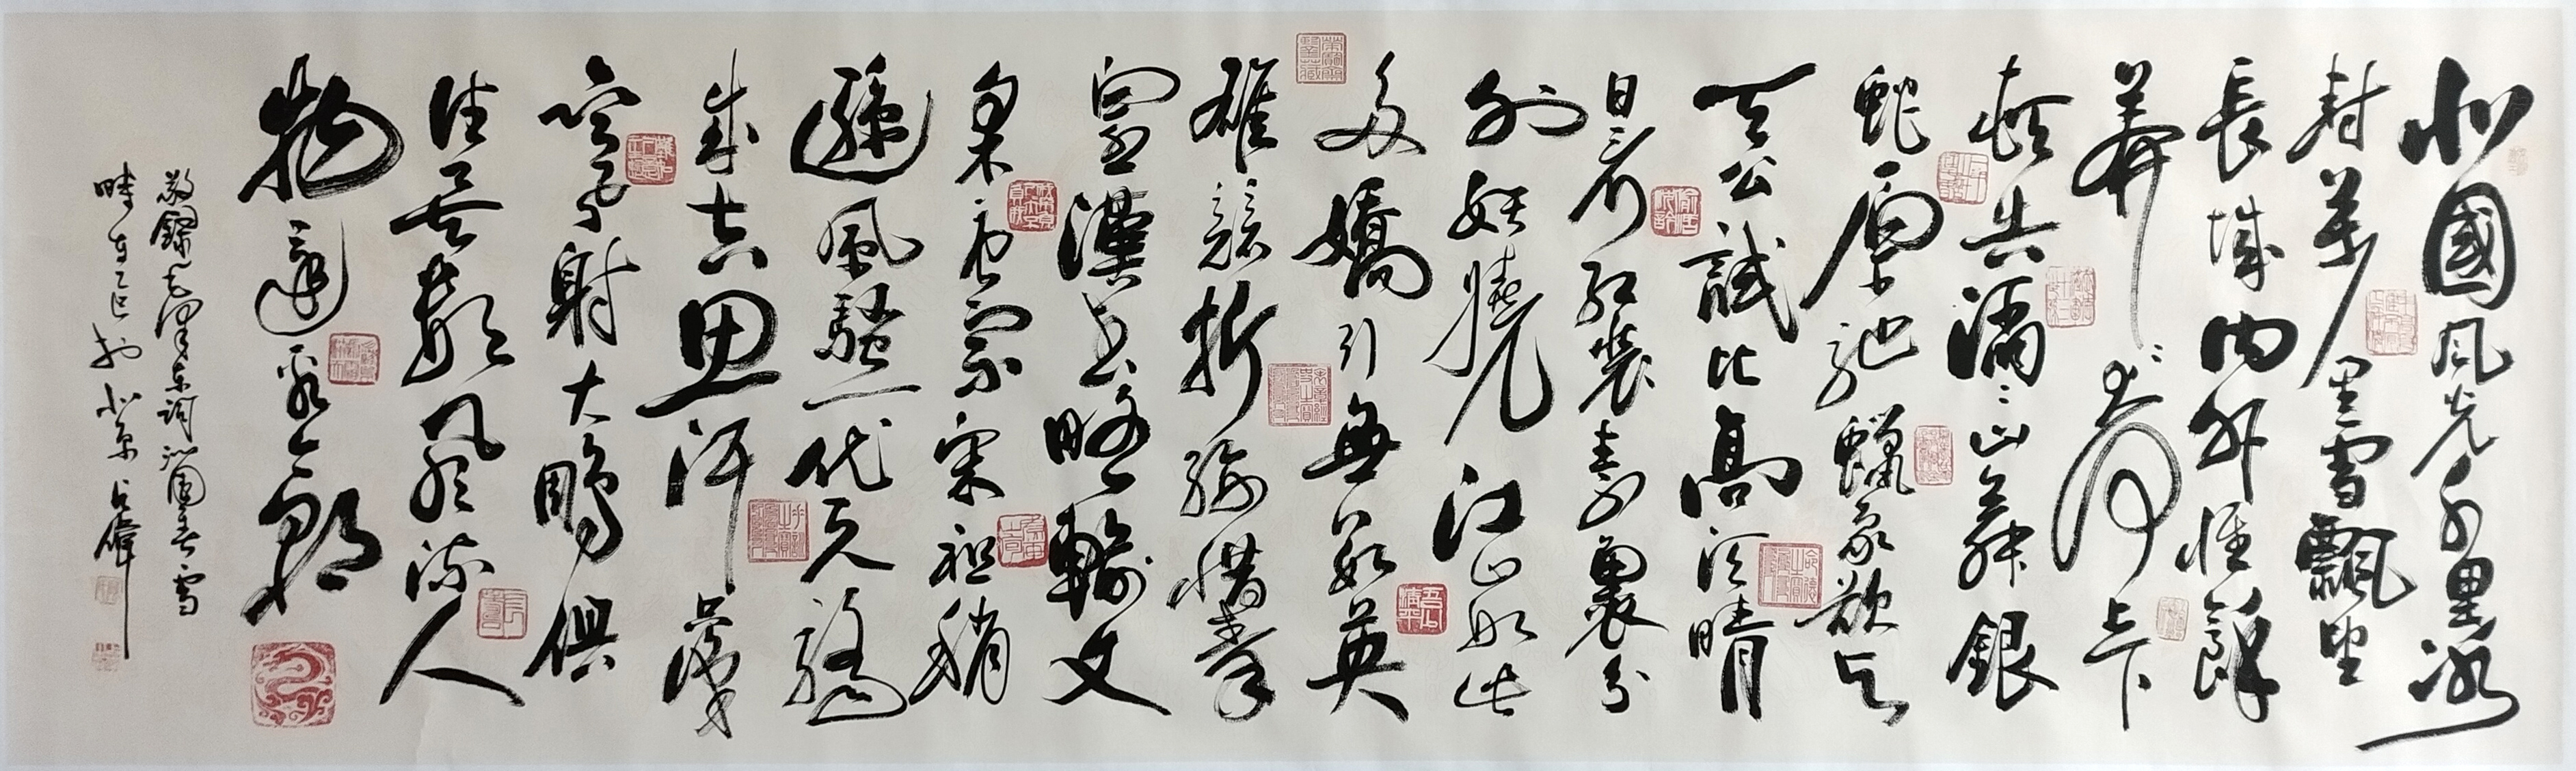 北國風光千里冰
封萬里雪飄望
長城內外惟餘
莽々大河上下
頓失滔々山舞銀
蛇原馳蠟象欲與
天公試比高須晴
日看紅裝素裹分
外妖嬈江山如此
多嬌引無數英
雄競折腰惜秦
皇漢武略輸文
采唐宗宋祖稍
遜風騷一代天驕
成吉思汗只識
彎弓射大鵰俱
往矣數風流人
物還看今朝
敬錄毛澤東詞沁園春雪
時在乙巳於北京